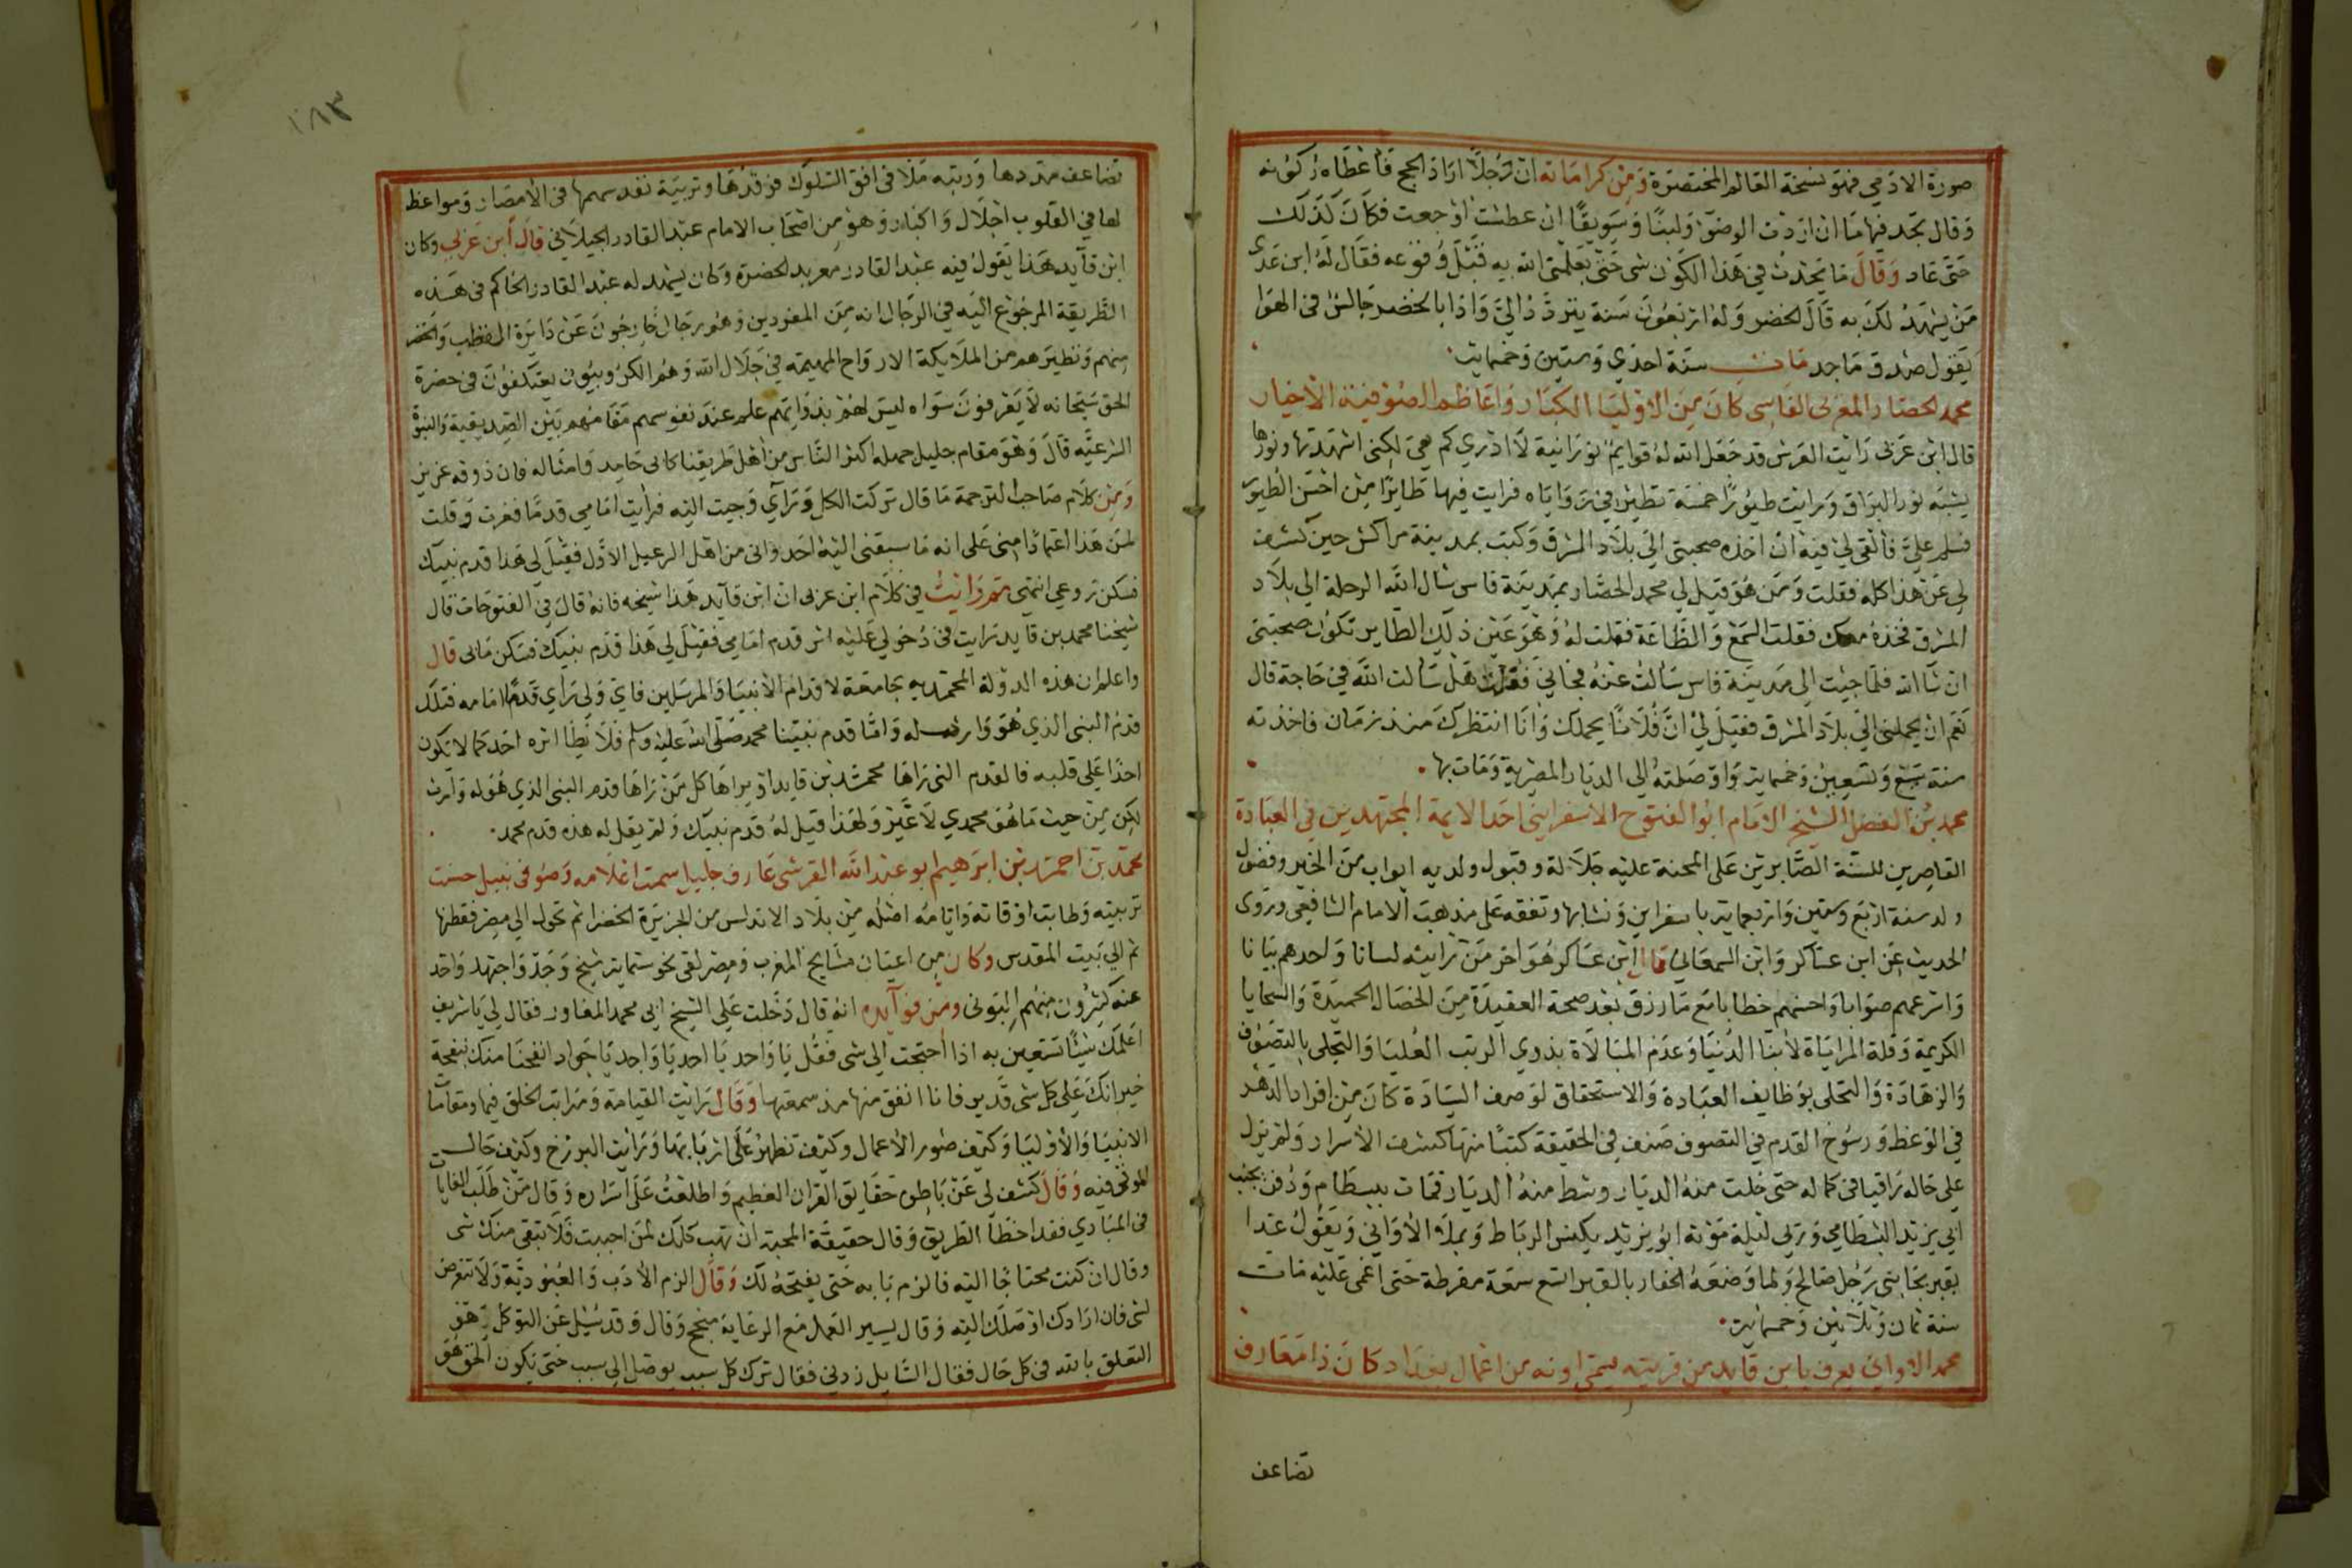 صورة الادمي فهو نسخة العالم المختصرة ومن كراماته ان رجلا اراد الحج فاعطاه ركوته
وقال تجد فيها ما ان اردت الوضو ولبنا وسويقا ان عطشت او جعت فكان كذلك
حتى عاد وقال ما يحدث في هذا الكون شي حتى يعلمني الله به قبل وقوعه فقال له ابن عدى
من يشهد لك به قال الخضر وله اربعون سنة يتردد الي واذا بالخضر جالس في الهوا
يقول صدق ماجد مات سنة احدي وستين وخمسايه
محمد الحصار المغربى الفاسى كان من الاوليا الكبار واعاظم الصوفية الاخيار
قال ابن عربى رايت العرش قد جعل الله له قوايم نورانية لا ادري كم هي لكنى اشهدتها ونورها
يشبه نور البراق ورايت طيورا حسنة تطير في زواياه فرايت فيها طايرا من احسن الطيور
فسلم علي فالقى لي فيه ان اخذه صحبتى الي بلاد المشرق وكنت بمدينة مراكش حين كشف
لي عن هذا كله فقلت ومن هو قيل لي محمد الحصار بمدينة فاس سال الله الرحلة الي بلاد
المشرق فخذه معك فقلت السمع والطاعة فقلت له وهو عين ذلك الطاير تكون صحبتى
ان شا الله فلما جيت الي مدينة فاس سالت عنه فجاني فقلت هل سالت الله في حاجة قال
نعم ان يحملنى الي بلاد المشرق فقيل لي ان فلانا يحملك وانا انتظرك منذ زمان فاخذته
سنة سبع وتسعين وخمسايه واوصلته الي الديار المصرية ومات بها
محمد بن الفضل الشيخ الامام ابو الفتوح الاسفراينى احد الايمة المجتهدين في العبادة
القاصرين للسنة الصابرين على المحنة عليه جلالة وقبول ولديه ابواب من الخير وفضول
ولد سنة اربع وسعين واربعمايه باسفراين ونشابها وتفقه على مذهب الامام الشافعى وروى
الحديث عن ابن عساكر وابن السمعاني قال ابن عساكر هو اخر من رايته لسانا واحدهم بيانا
واسرعهم صوابا واحسنهم خطابا مع ما رزق بعد صحة العقيدة من الخصال الحميدة والسجايا
الكريمة وقلة المراياة لابنا الدنيا وعدم المبالاة بذوي الرتب العليا والتجلى بالتصوف
والزهادة والتحلى بوظايف العبادة والاستحقاق لوصف السيادة كان من افراد الدهر
في الوعظ ورسوخ القدم في التصوف صنف في الحقيقة كتبا منها كشف الاسرار ولم يزل
على حاله راقيا في كماله حتى خلت منه الديار وشط منه الديار فمات ببسطام ودفن بجنب
ابي يزيد البسطامي وريي ليلة موته ابو يزيد يكنس الرباط ويملا الاواني ويقول غدا
يقبر بجانبى رجل صالح ولما وضعه الحفار بالقبر اتسع سعة مفرطة حتى اغمى عليه مات
سنة ثمان وثلاثين وخمسايه
محمد الاواني يعرف بابن قايد من قرية يسمى اونه من اعمال بغداد كان ذا معارف
تضاعف
١٨٣
تضاعف مددها ورتبه ملا في افق السلوك فرقدها وتربية نفد سهمها في الامصار ومواعظ
لها في القلوب اجلال واكبار وهو من اصحاب الامام عبد القادر الجيلاني قال ابن عربي وكان
ابن قايد هذا يقول فيه عبد القادر معربد الحضرة وكان يشهد له عبد القادر الحاكم في هذه
الطريقة المرجوع اليه في الرجال انه من المفردين وهم رجال خارجون عن دايرة القطب والخضر
منهم ونظيرهم من الملايكة الارواح المهيمة في جلال الله وهم الكروبيون يعتكفون في حضرة
الحق سبحانه لا يعرفون سواه ليس لهم بذواتهم علم عند نفوسهم مقامهم بين الصديقية والنبوة
الشرعيه قال وهو مقام جليل جهله اكثر الناس من اهل طريقنا كابى حامد وامثاله فان ذوقه عزيز
ومن كلام صاحب الترجمة ما قال تركت الكل وراي وجيت اليه فرايت امامي قدما فغرت وقلت
لمن هذا اعتمادا منى على انه ما سبقنى اليه احد وانى من اهل الرعيل الاول فقيل لي هذا قدم نبيك
فسكن روعي انتهى ثم رايت في كلام ابن عربى ان ابن قايد هذا شيخه فانه قال في الفتوحات قال
شيخنا محمد بن قايد رايت في دخولي عليه اثر قدم امامي فقيل لي هذا قدم نبيك فسكن مابى قال
واعلم ان هذه الدولة المحمديه جامعة لاقدام الانبيا والمرسلين فاي ولي راي قدما امامه فتلك
قدم النبى الذي هو وارثه له واما قدم نبينا محمد صلى الله عليه وسلم فلا يطا اثره احد كما لا يكون
احدا على قلبه فالقدم التى راها محمد بن قايد او يراها كل من راها قدم النبى الذي هو له وارث
لكن من حيث ما هو محمدي لا غير ولهذا قيل له قدم نبيك ولم يقل له هذه قدم محمد
محمد بن احمد بن ابرهيم ابو عبد الله القرشى عارف جليل سمت اعلامه وصوفى نبيل حسنت
تربيته وطابت اوقاته وايامه اصله من بلاد الاندلس من الجزيرة الخضرا ثم تحول الي مصر فقطنها
ثم الي بيت المقدس وكان من اعيان مشايخ المغرب ومصر لقى نحو ستمايه شيخ وجد واجتهد واخد
عنه كثيرون منهم البونى ومن فوايده انه قال دخلت على الشيخ ابي محمد المغاور فقال لي يا شريف
اعلمك شيئا تستعين به اذا احتجت الي شى فقل يا واحد يا احد يا واجد يا جواد انفحنا منك بنفحة
خير انك على كل شى قدير فانا انفق منها منذ سمعتها وقال رايت القيامة ومراتب الخلق فيها ومقامات
الانبيا والاوليا وكيف صور الاعمال وكيف تظهر على اربابها ورايت البرزخ وكيف حال
الموتى فيه وقال كشف لي عن باطن حقايق القران العظيم واطلعت على اسراره وقال من طلب الغايات
في المبادي فقد اخطا الطريق وقال حقيقة المحبة ان تهب كلك لمن احببت فلا تبقى منك شى
وقال ان كنت محتاجا اليه فالزم بابه حتى يفتحه لك وقال الزم الادب والعبودية ولا تتعرض
لشى فان ارادك اوصلك اليه وقال يسير العمل مع الرعاية منجح وقال وقد سيل عن التوكل هو
التعلق بالله في كل حال فقال السايل زدني فقال ترك كل سبب يوصل الي سبب حتى يكون الحق هو